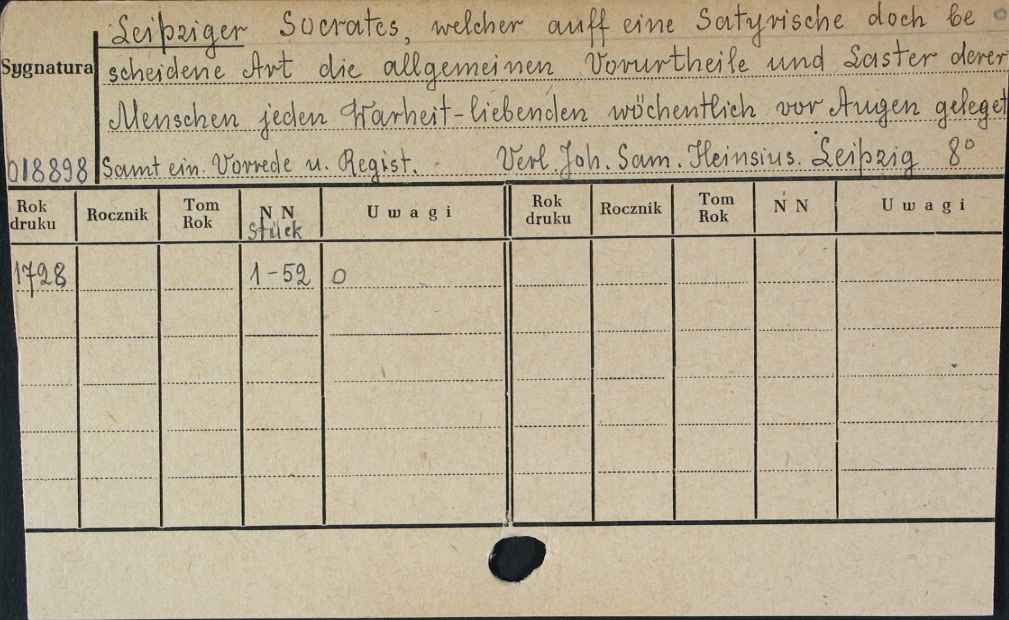 Leipziger Socrates, welcher auff eine Satyrische doch be
Sygnatura
scheidene Art die allgemeinen Vorurtheile und Laster derer
Menschen jeden Warheit-liebenden wöchentlich vor Augen geleget
018898 Samt ein. Vorrede u. Regist. Verl. Joh. Sam. Heinsius. Leipzig 8°
Rok druku Rocznik Tom Rok N N Stück Uwagi Rok druku Rocznik Tom Rok N N Uwagi
1728 1-52 0